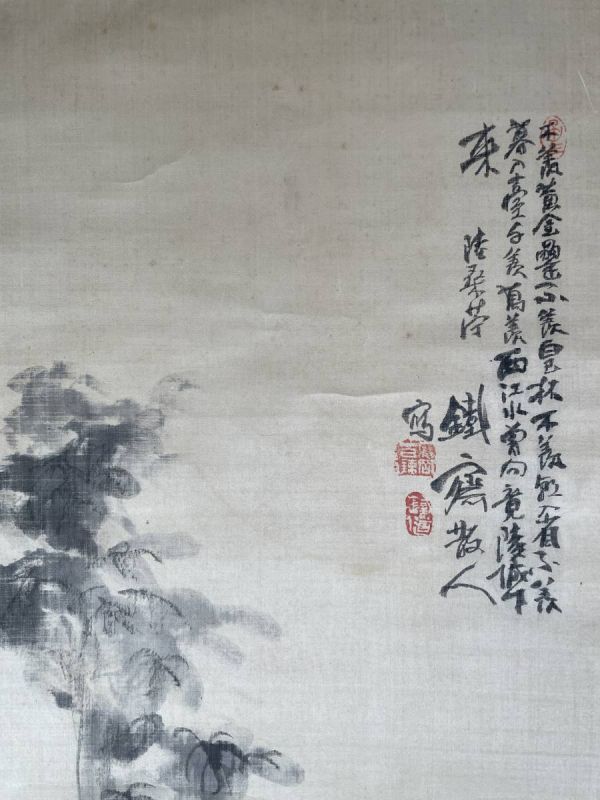 不羨黃金罍不羨白玉杯不羨朝入省不羨
暮入臺千羨萬羨西江水曾向竟陵城下
來 陸桑苧 鐵齋散人
寫